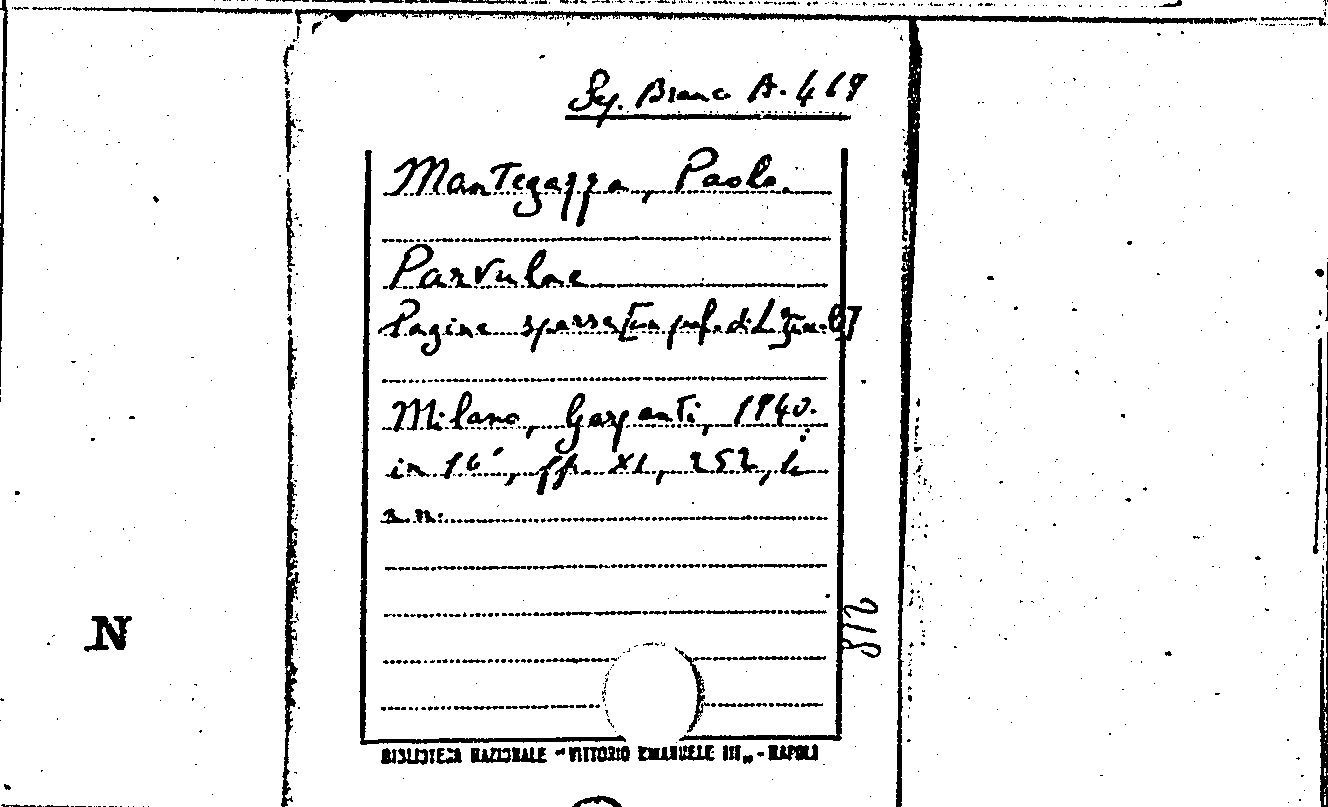 Sg. Branco A. 418
Mantegazza, Paolo.
Parvulae
Pagine sparse [con pref. di L.
Milano, Garzanti, 1940.
in 16°, pp. XI, 252, 1
n.n.
N
812
BIBLIOTECA NAZIONALE "VITTORIO EMANUELE III„ - NAPOLI